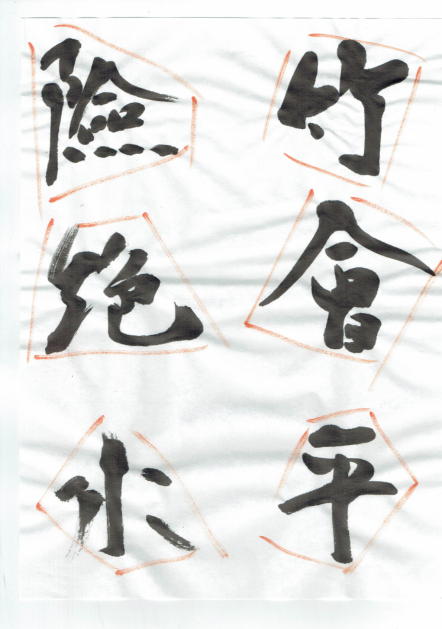 竹會平
險絶水